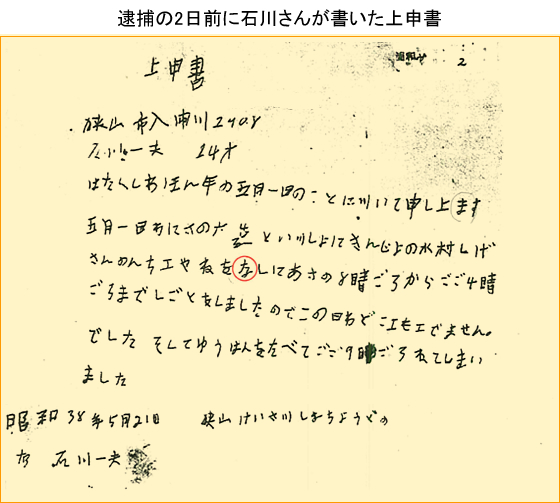 逮捕の2日前に石川さんが書いた上申書
上申書 2
狭山市入間川2908
石川一夫 24才
はたくしあほん年の五月一日のことに川いて申し上ます
五月一日あにきの六造とい川しよにきんじよの水村しげ
さんのんち工やねをなしにあさの8時ごろからごご4時
ごろまでしごとをしましたのでこの日わどこ工も工でません。
でした そしてゆうはんをたべてごご9時ごろねてしまい
ました
昭和38年5月21日 狭山けいさ川しよちようどの
石川一夫